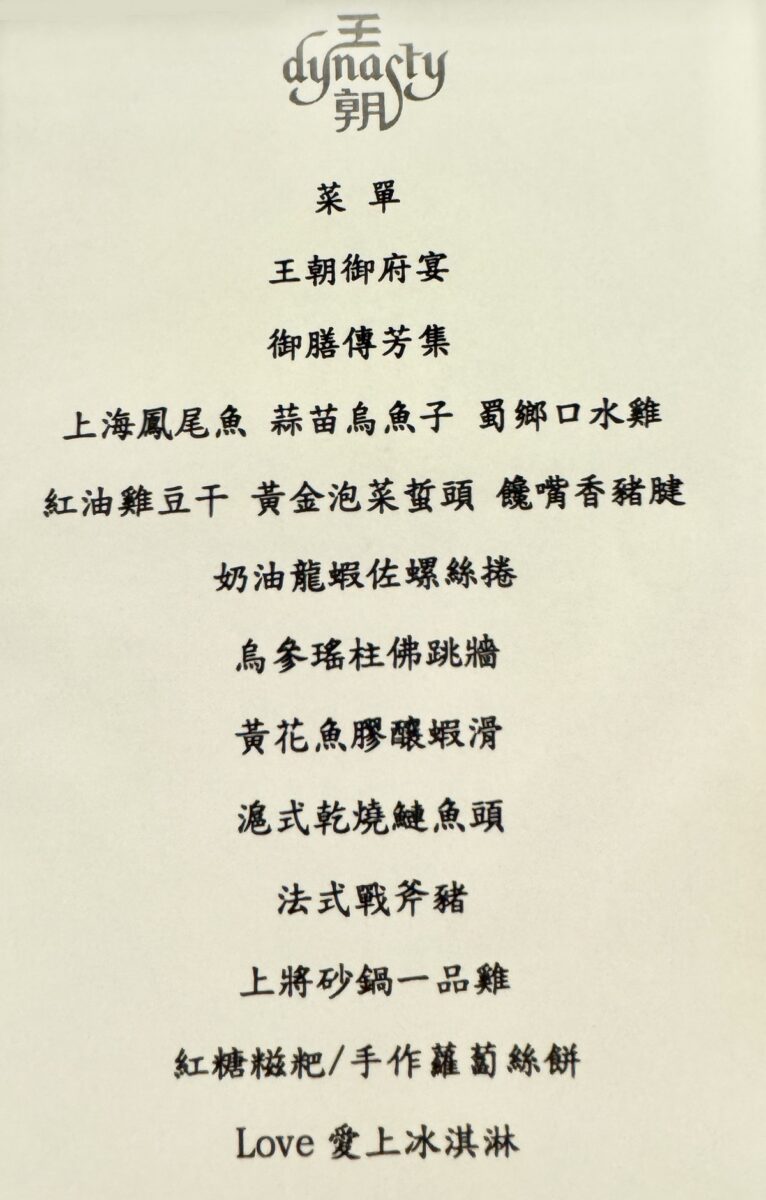 王
dynasty
朝
菜 單
王朝御府宴
御膳傳芳集
上海鳳尾魚 蒜苗烏魚子 蜀鄉口水雞
紅油雞豆干 黃金泡菜蜇頭 饞嘴香豬腱
奶油龍蝦佐螺絲捲
烏參瑤柱佛跳牆
黃花魚膠釀蝦滑
滬式乾燒鰱魚頭
法式戰斧豬
上將砂鍋一品雞
紅糖糍粑/手作蘿蔔絲餅
Love 愛上冰淇淋